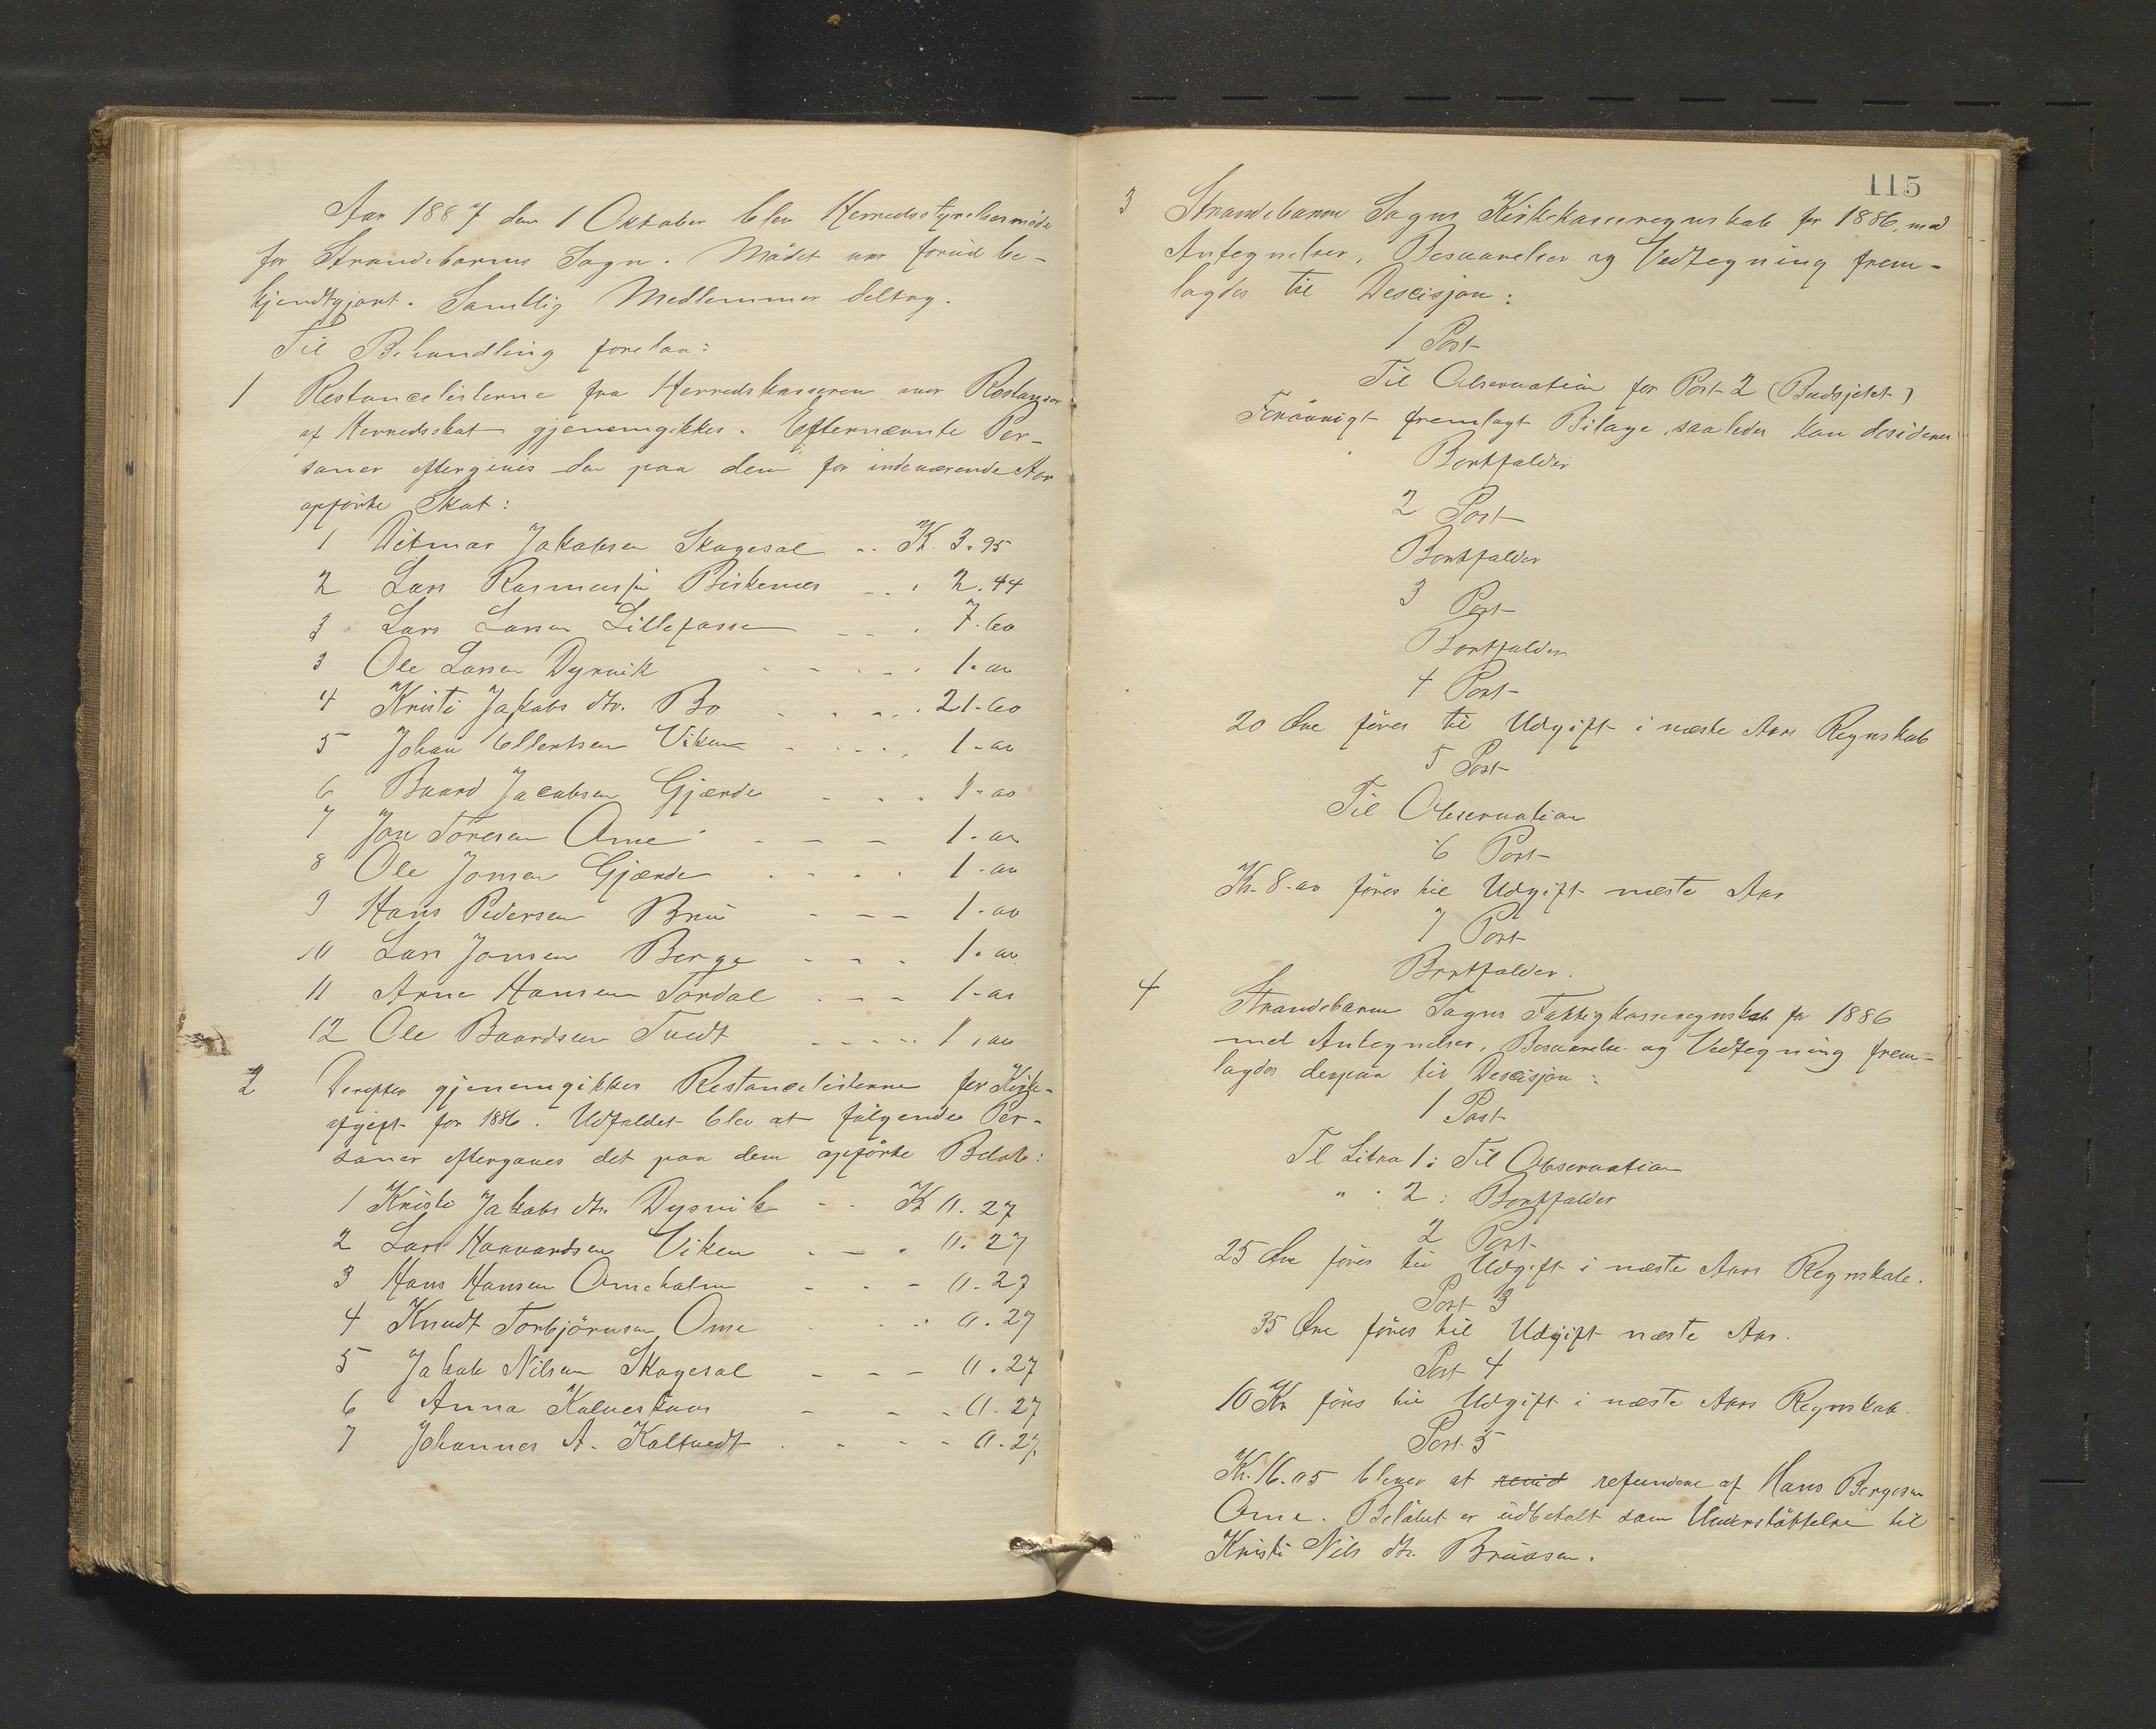 Aar 1887 den 1 Oktober blev Herredsstyrelsesmøde
for Strandebarms Sogn. Mødet var forud be-
kjendtgjort. Samtlig Medlemmer deltog.
Til Behandling forelaa:
1 Restancelisterne fra Herredskasseren over Restanser
af Herredsskat gjenemgikkes. Efternævnte Per-
soner eftergives den paa dem for indeværende Aar
opførte Skat:
1 Ditmar Jakobsen Skogesal .. K. 3.95
2 Lars Rasmussen Birkenes - . . 2.44
3 Lars Larsen Lillefosse - - . 7.60
3 Ole Larsen Dysvik . - - . 1.00
4 Kristi Jakobs dtr. Bø . . - . 21.60
5 Johan Ellertsen Viken - . - . . 1-00
6 Baard Jacobsen Gjærde - . . 1.00
7 Jon Tøresen Ome - - - 1.00
8 Ole Jonsen Gjærde . . . . 1-00
9 Hans Pedersen Bru - - - 1-00
10 Lars Jonsen Berge - - . 1.00
11 Arne Hansen Tordal . - - 1-00
12 Ole Baardsen Tvedt - - - . . 1,00
2 Derefter gjenemgikkes Restancelisterne for Kirke-
afgift for 1886. Udfaldet blev at følgende Per-
soner eftergaves det paa dem opførte Beløb:
1 Kristi Jakobs dtr. Dysvik - - K 0.27
2 Lars Haavardsen Viken . - . 0.27
3 Hans Hansen Omeholm - . - 0.27
4 Knudt Torbjørnsen Ome . - . 0.27
5 Jakob Nilsen Skogesal - - - 0.27
6 Anna Kalvestaas - - - 0.27
7 Johannes A. Kaltvedt . - - - 0.27.
115
3 Strandebarm Sogns Kirkekasseregnskab for 1886, med
Antegnelser, Besvarelser og Vedtegning frem-
lagdes til Descisjon:
1 Post
Til Observation for Post 2 (Budsjetet)
Forøvrigt fremlagt Bilage, saaledes kan desideres
Bortfalder
2 Post
Bortfalder
3 Post
Bortfalder
4 Post
20 Øre føres til Udgift i næste Aars Regnskab
5 Post
Til Observation
6 Post
Kr. 8.00 føres til Udgift næste Aar
7 Post
Bortfalder.
4 Strandebarm Sogns Fattigkasseregnskab for 1886
med Antegnelser, Besvarelse og Vedtegning frem-
lagdes derpaa til Descisjon:
1 Post
Til Litra 1: Til Observation
" . 2: Bortfalder
2 Post
25 Øre føres til Udgift i næste Aars Regnskab.
Post 3
35 Øre føres til Udgift næste Aar.
Post 4
10 Kr føres til Udgift i næste Aars Regnskab.
Post 5
Kr. 16.05 bliver at refundere af Hans Børgesen
Ome. Beløbet er udbetalt som Understøttelse til
Kristi Nils dtr. Bruosen.